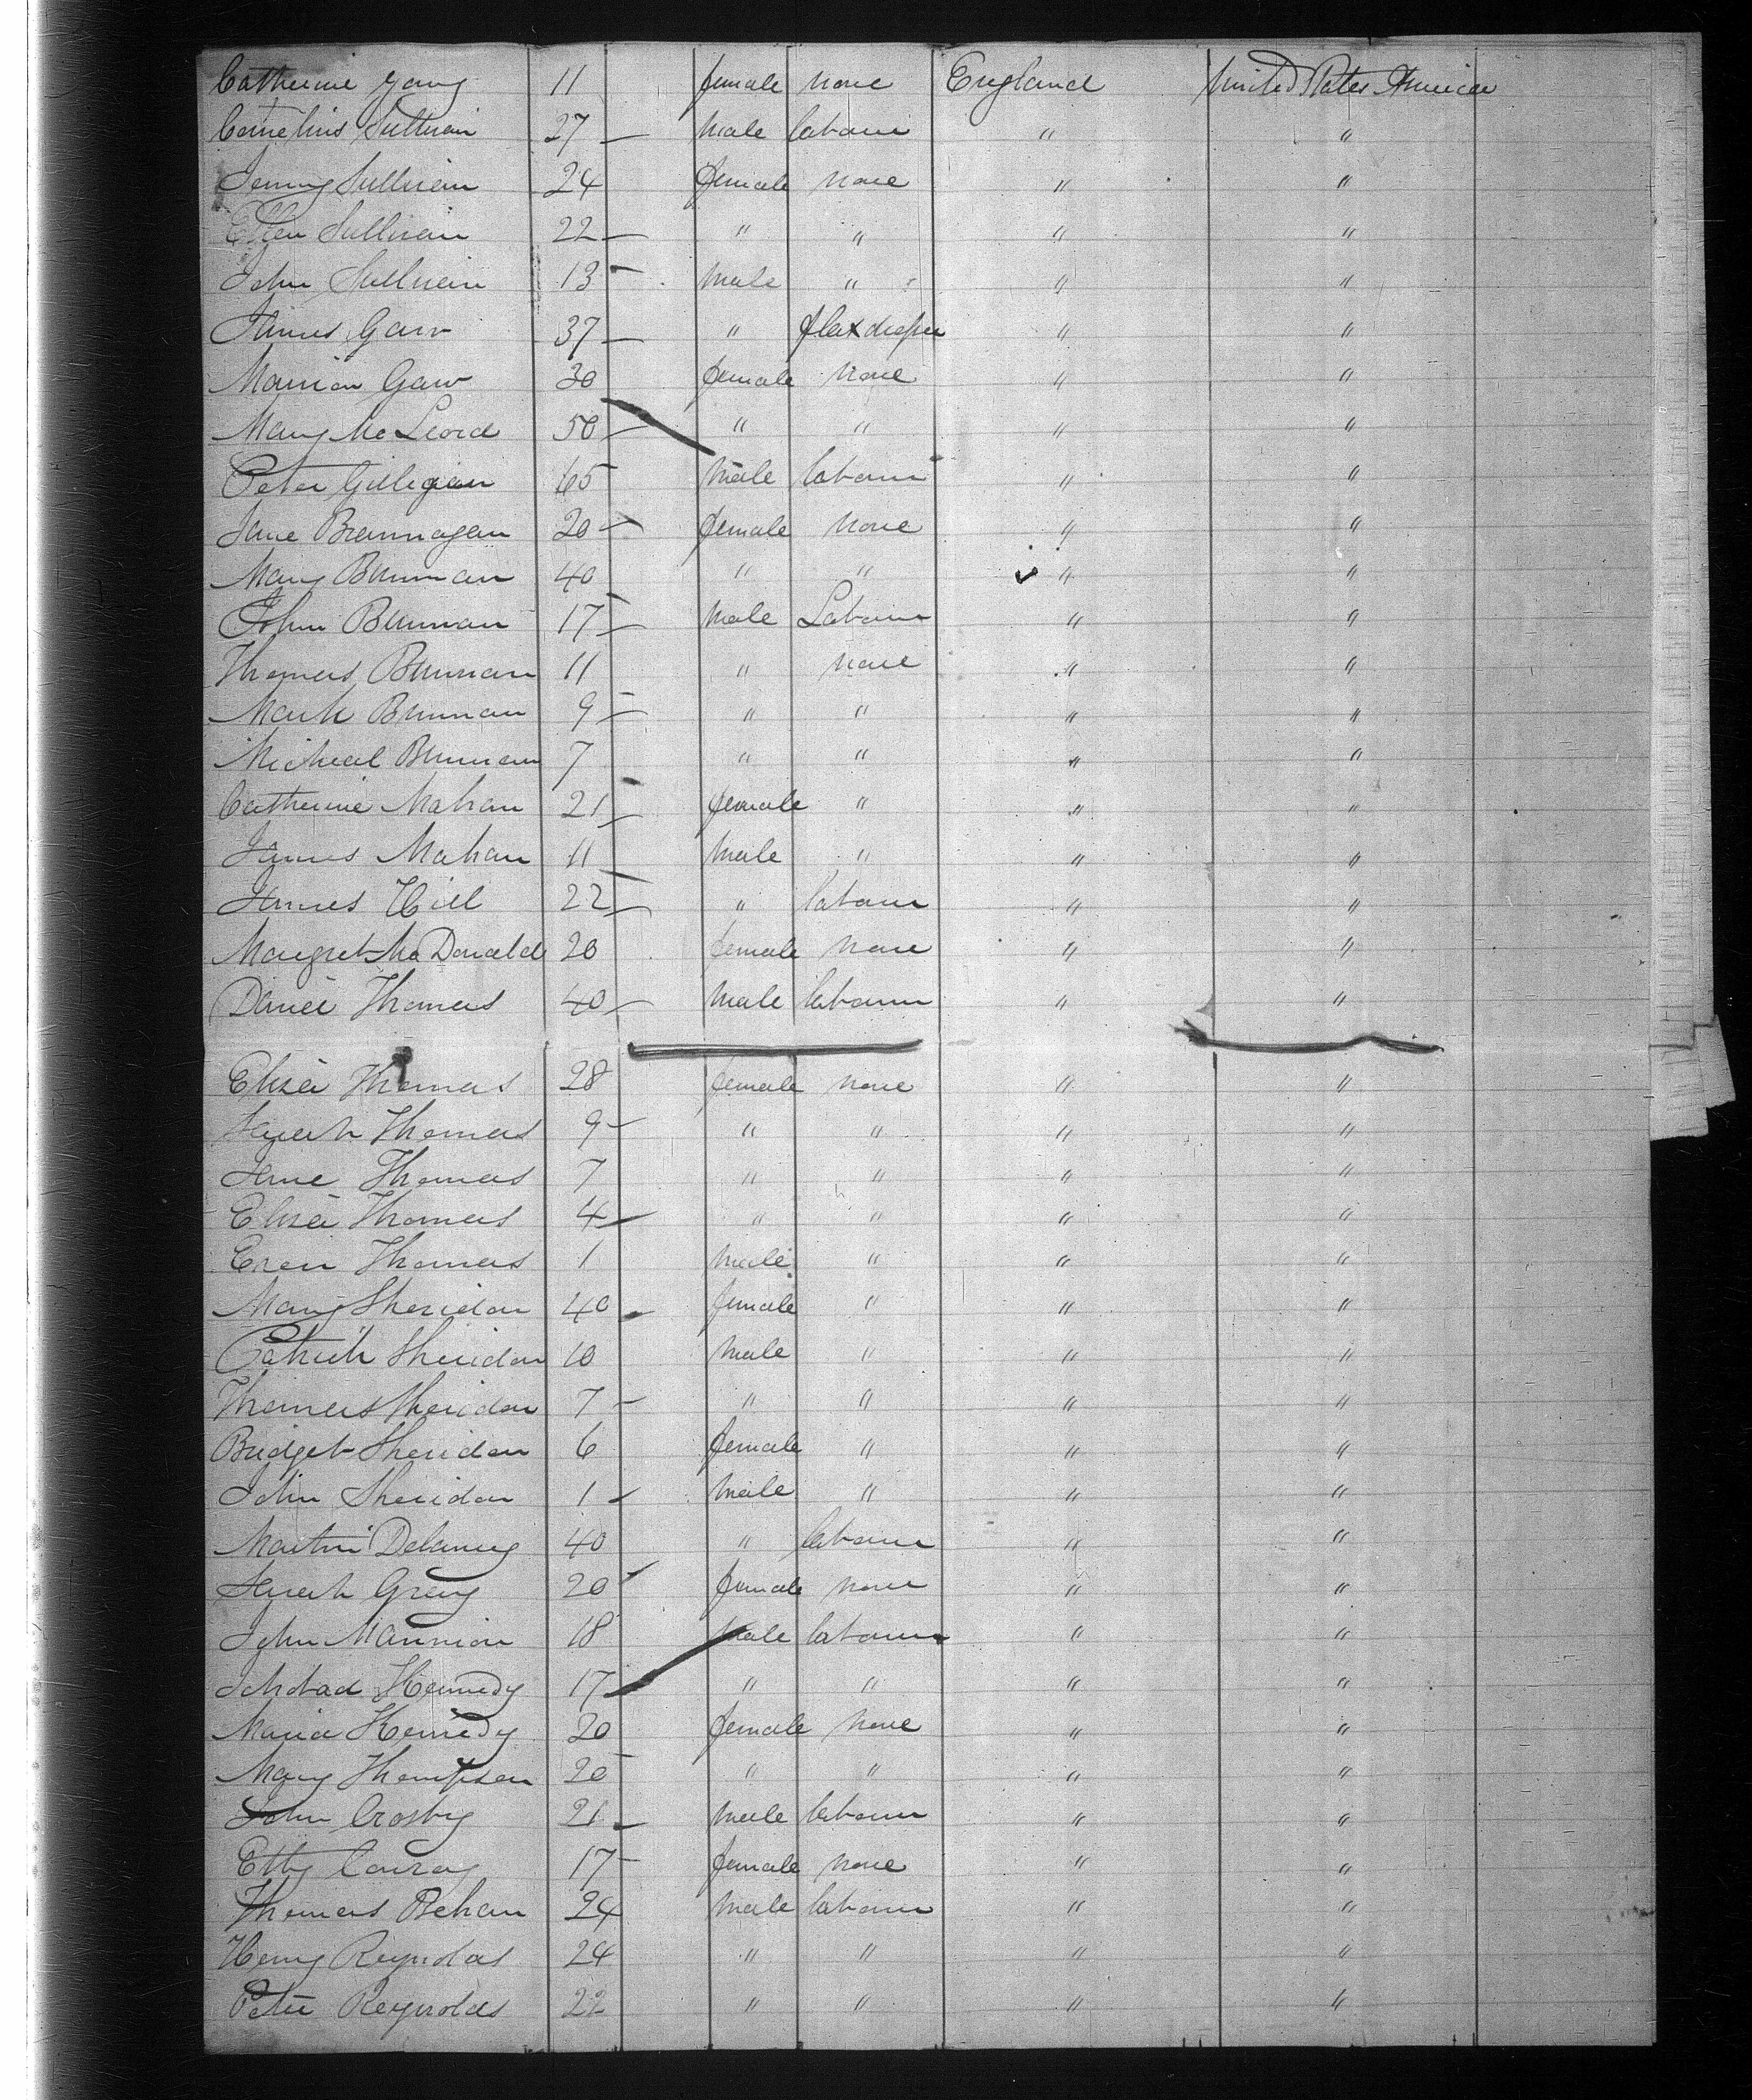 Catherine Yong 11 female none England United States America
Cornelius Sullivan 27 male labour " "
Jenny Sullivan 24 female none " "
Ellen Sullivan 22 " " " "
John Sullivan 13 male " " "
James Gaw 37 " flaxdresser " "
Marrion Gaw 30 female none " "
Mary Mc Leord 50 " " " "
Peter Gillegan 45 male labour " "
Jane Brannagan 20 female none " "
Mary Brennan 40 " " " "
John Brennan 17 male Labour " "
Thomas Brennan 11 " none " "
Mark Brennan 9 " " " "
Micheal Brennan 7 " " " "
Catherine Mahan 21 female " " "
James Mahan 11 male " " "
James Hill 22 " labour " "
Margret Mc Donald 20 female none " "
Daniel Thomas 40 male labour " "
Eliza Thomas 28 female none " "
Sarah Thomas 9 " " " "
Jane Thomas 7 " " " "
Eliza Thomas 4 " " " "
Even Thomas 1 male " " "
Mary Sheridan 40 female " " "
Patrick Sheridan 10 male " " "
Thomas Sheridan 7 " " " "
Bridget Sheridan 6 female " " "
John Sheridan 1 male " " "
Martin Delaney 40 " labour " "
Sarah Greny 20 female none " "
John Mannion 18 male labour " "
Kennedy 17 " " " "
Maria Kennedy 20 female none " "
Mary Thompson 20 " " " "
John Crosby 21 male labour " "
Etty Conroy 17 female none " "
Thomas Behan 24 male labour " "
Henry Reynolds 24 " " " "
Peter Reynolds 22 " " " "